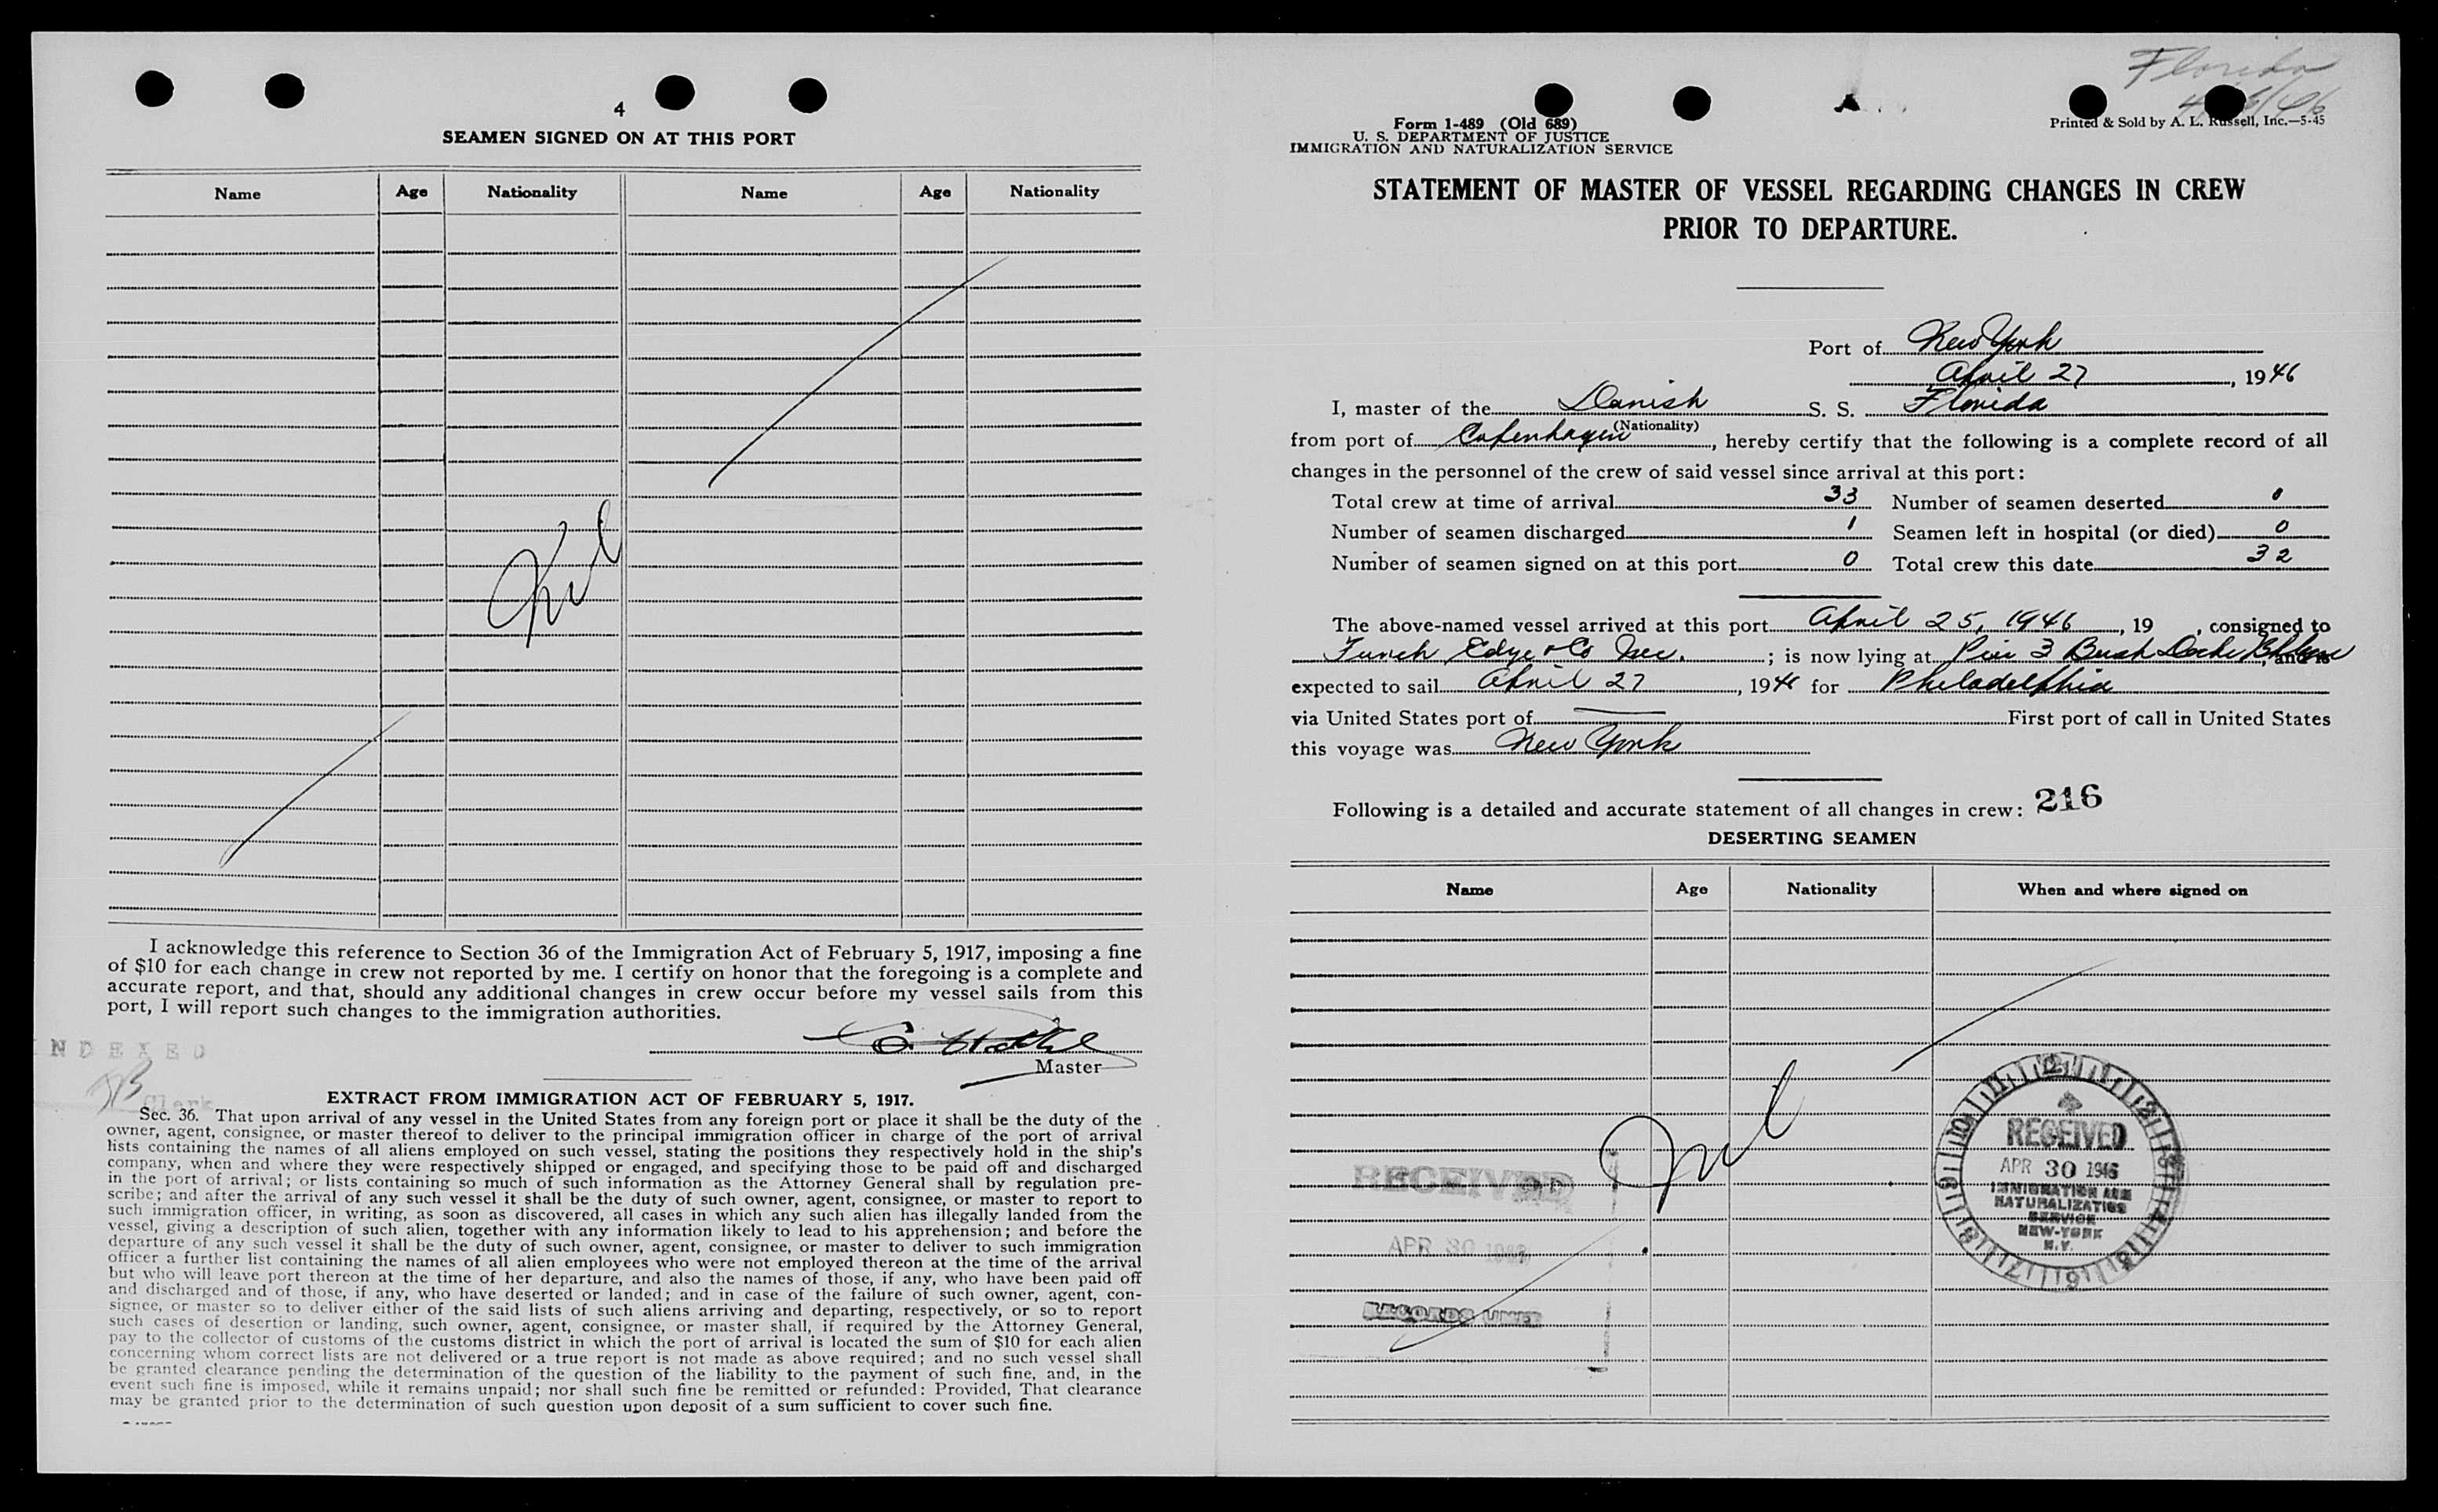 4
SEAMEN SIGNED ON AT THIS PORT
Name Age Nationality Name Age Nationality
Nil
I acknowledge this reference to Section 36 of the Immigration Act of February 5, 1917, imposing a fine
of $10 for each change in crew not reported by me. I certify on honor that the foregoing is a complete and
accurate report, and that, should any additional changes in crew occur before my vessel sails from this
port, I will report such changes to the immigration authorities.
NDEXED
Master
Clerk
EXTRACT FROM IMMIGRATION ACT OF FEBRUARY 5, 1917.
Sec. 36. That upon arrival of any vessel in the United States from any foreign port or place it shall be the duty of the
owner, agent, consignee, or master thereof to deliver to the principal immigration officer in charge of the port of arrival
lists containing the names of all aliens employed on such vessel, stating the positions they respectively hold in the ship's
company, when and where they were respectively shipped or engaged, and specifying those to be paid off and discharged
in the port of arrival; or lists containing so much of such information as the Attorney General shall by regulation pre-
scribe; and after the arrival of any such vessel it shall be the duty of such owner, agent, consignee, or master to report to
such immigration officer, in writing, as soon as discovered, all cases in which any such alien has illegally landed from the
vessel, giving a description of such alien, together with any information likely to lead to his apprehension; and before the
departure of any such vessel it shall be the duty of such owner, agent, consignee, or master to deliver to such immigration
officer a further list containing the names of all alien employees who were not employed thereon at the time of the arrival
but who will leave port thereon at the time of her departure, and also the names of those, if any, who have been paid off
and discharged and of those, if any, who have deserted or landed; and in case of the failure of such owner, agent, con-
signee, or master so to deliver either of the said lists of such aliens arriving and departing, respectively, or so to report
such cases of desertion or landing, such owner, agent, consignee, or master shall, if required by the Attorney General,
pay to the collector of customs of the customs district in which the port of arrival is located the sum of $10 for each alien
concerning whom correct lists are not delivered or a true report is not made as above required; and no such vessel shall
be granted clearance pending the determination of the question of the liability to the payment of such fine, and, in the
event such fine is imposed, while it remains unpaid; nor shall such fine be remitted or refunded: Provided, That clearance
may be granted prior to the determination of such question upon deposit of a sum sufficient to cover such fine.
Florida
Form 1-489 (Old 689)
U. S. DEPARTMENT OF JUSTICE
IMMIGRATION AND NATURALIZATION SERVICE
Printed & Sold by A. L. Russell, Inc.—5-45
STATEMENT OF MASTER OF VESSEL REGARDING CHANGES IN CREW
PRIOR TO DEPARTURE.
Port of New York
April 27, 1946
I, master of the Danish S. S. Florida
(Nationality)
from port of Copenhagen, hereby certify that the following is a complete record of all
changes in the personnel of the crew of said vessel since arrival at this port:
Total crew at time of arrival 33 Number of seamen deserted 0
Number of seamen discharged 1 Seamen left in hospital (or died) 0
Number of seamen signed on at this port 0 Total crew this date 32
The above-named vessel arrived at this port April 25, 1946, 19 , consigned to
Funch Edye & Co Inc. ; is now lying at Pier 3 Bush Docks Bklyn, and is
expected to sail April 27, 1946 for Philadelphia
via United States port of — First port of call in United States
this voyage was New York
Following is a detailed and accurate statement of all changes in crew: 216
DESERTING SEAMEN
Name Age Nationality When and where signed on
Nil
RECEIVED
APR 30 1946
IMMIGRATION AND
NATURALIZATION
SERVICE
NEW-YORK
N.Y.
RECEIVED
APR 30
RECORDS UNIT